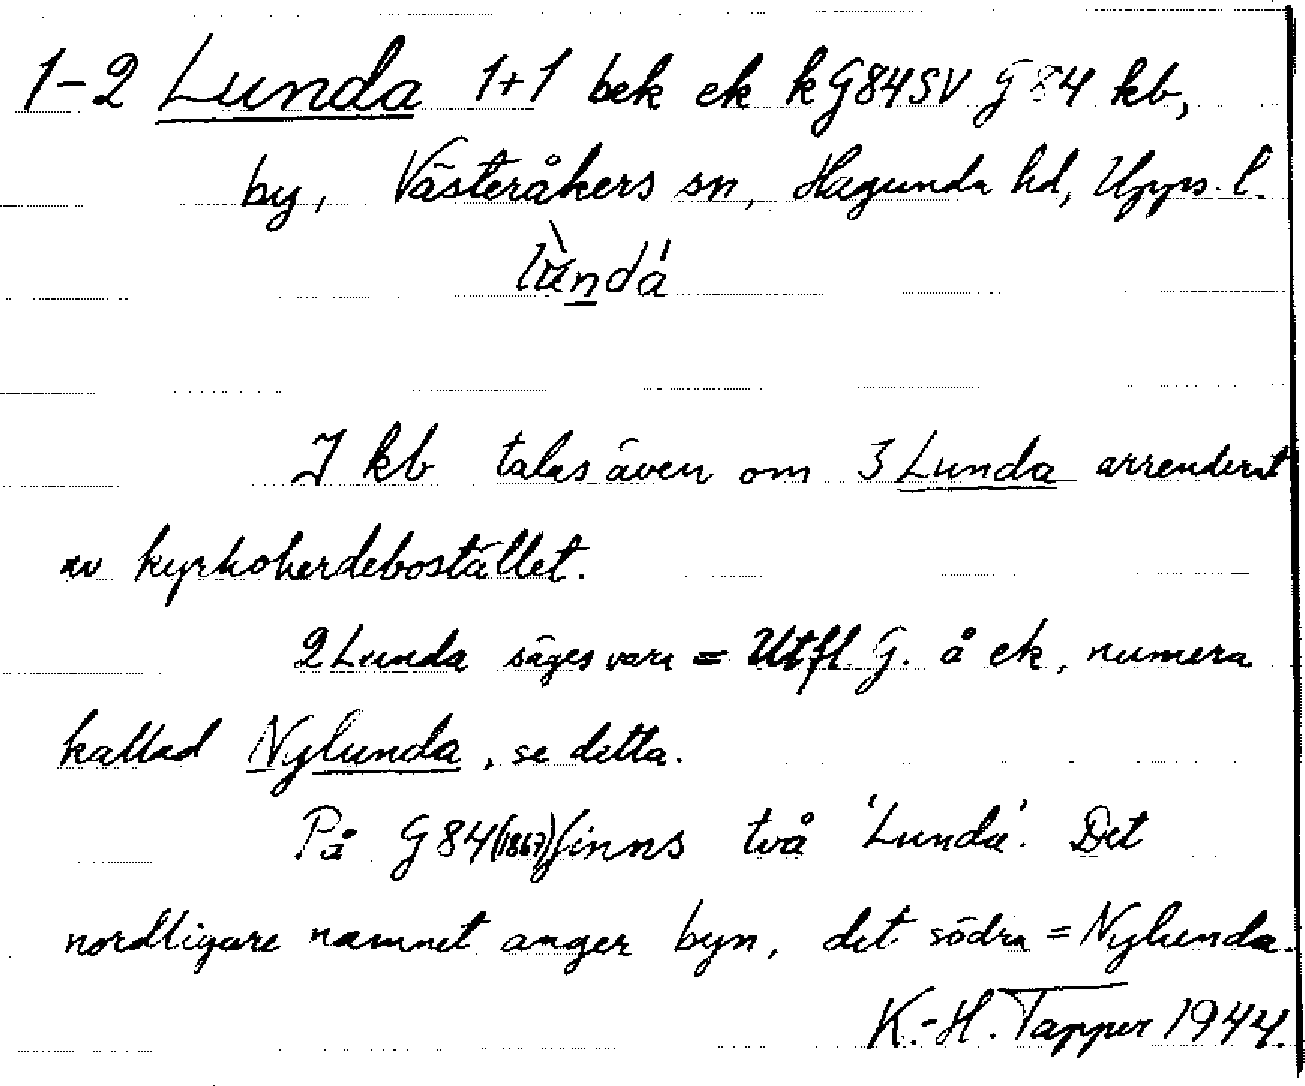 1-2 Lunda 1+1 bek ek k G84SV G 84 kb,
by, Västeråkers sn, Hagunda hd, Upps. l.
lùndá
I kb talas även om 3 Lunda arrenderat
av kyrkoherdebostället.
2 Lunda säges vara = Utfl G. å ek, numera
kallad Nylunda, se detta.
På G 84 (1867) finns två 'Lunda'. Det
nordligare namnet anger byn, det södra = Nylunda.
K.-H. Tapper 1944.